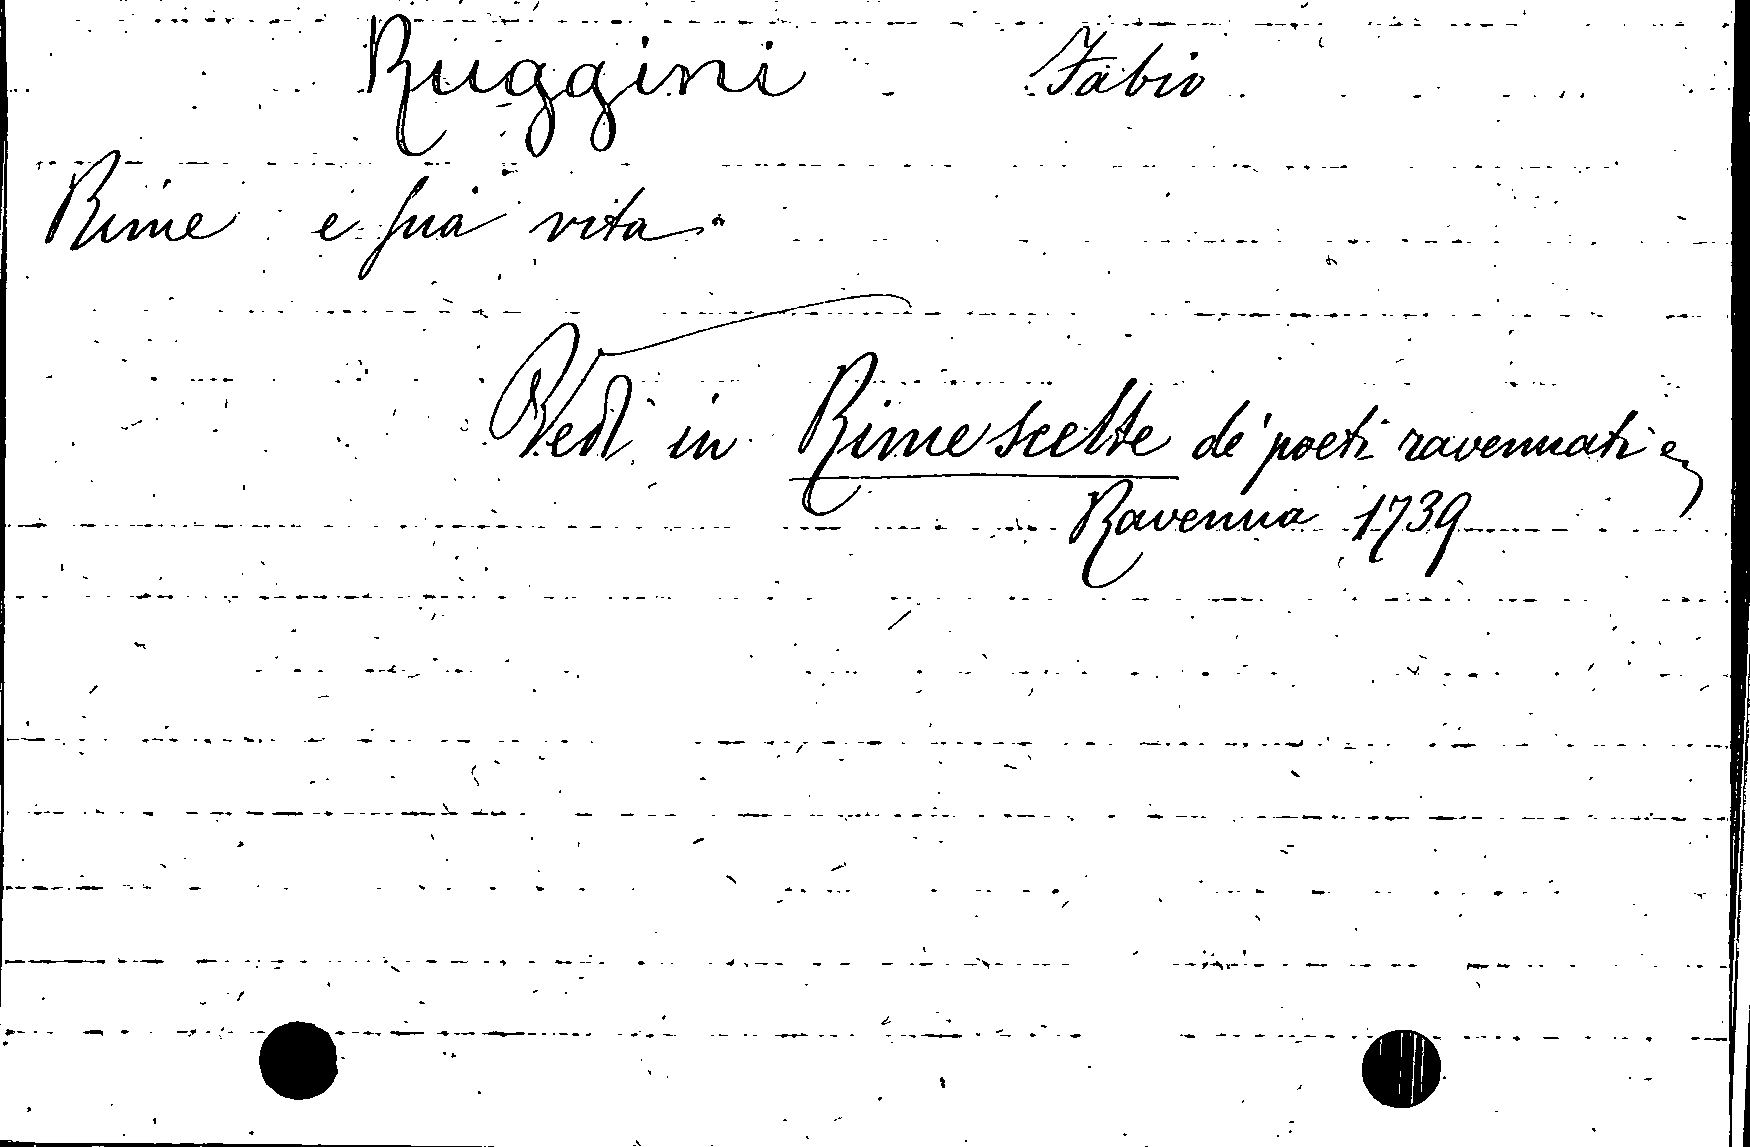 Ruggini Fabio
Rime e sua vita.
Vedi in Rime scelte de' poeti ravennati e
Ravenna 1739